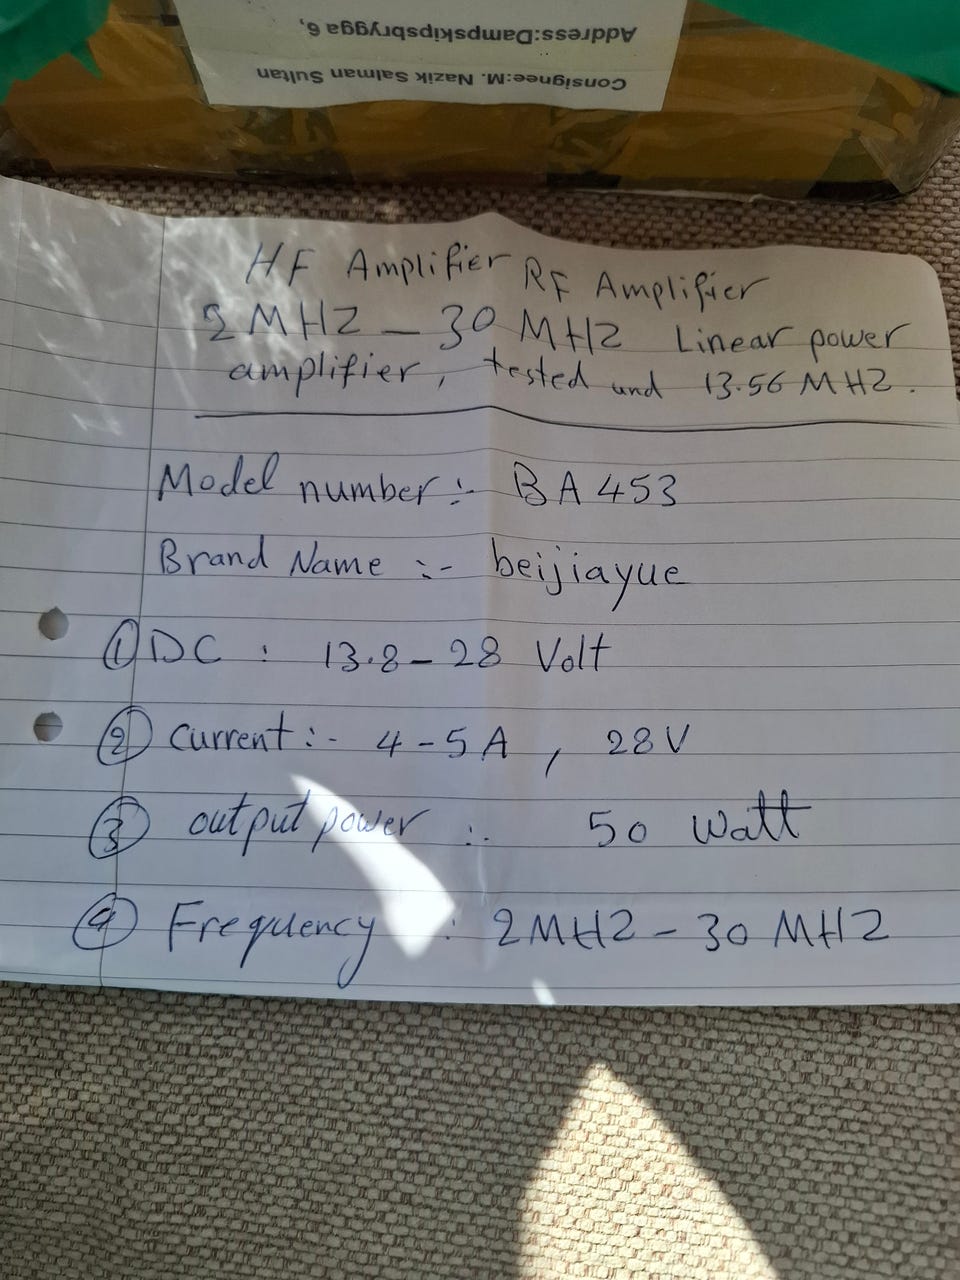 Consignee:M. Nazik Salman Sultan
Address:Dampskipsbrygga 6,
HF Amplifier RF Amplifier
2 MHZ - 30 MHZ Linear power
amplifier, tested und 13.56 MHZ.
Model number :- BA 453
Brand Name :- beijiayue
① DC : 13.8 - 28 Volt
② Current :- 4 - 5 A , 28 V
③ output power :- 50 Watt
④ Frequency : 2 MHZ - 30 MHZ